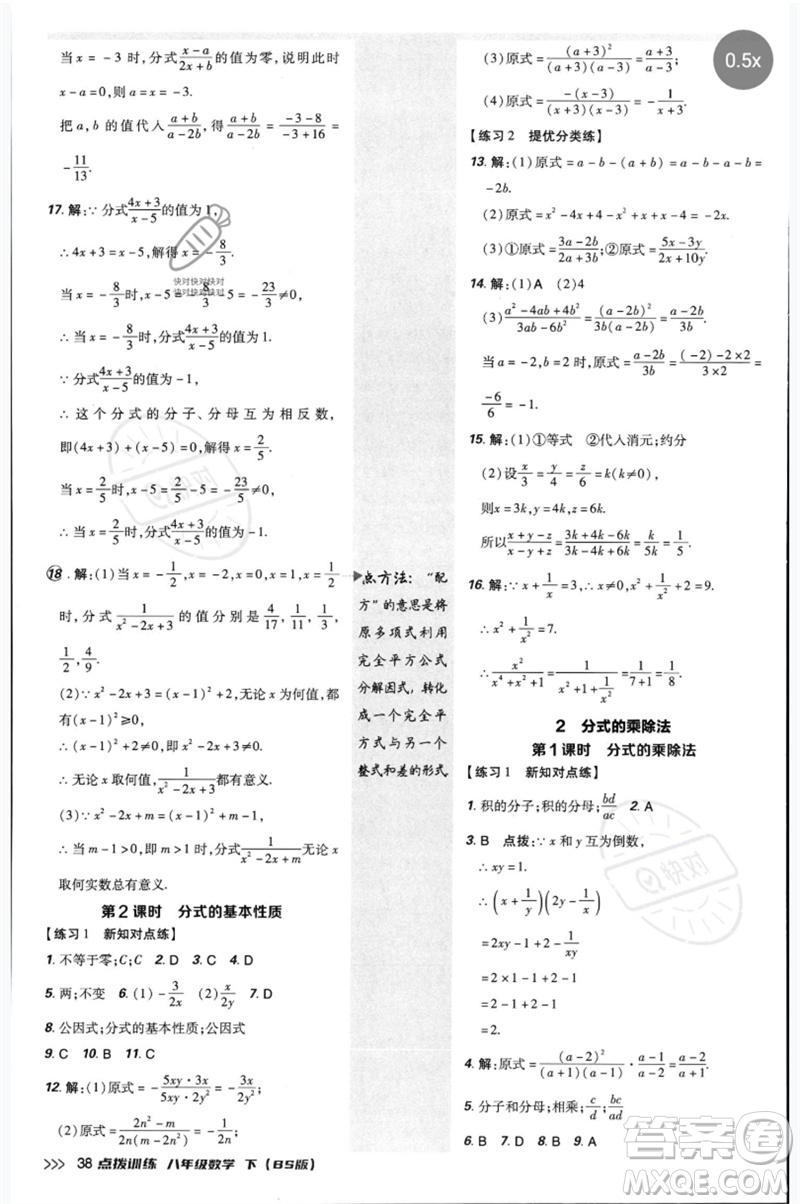 当 x = -3 时,分式(x-a)/(2x+b)的值为零,此时
x-a=0,则 a = -3.
把 a,b 的值代入(a+b)/(a-2b),得(a+b)/(a-2b)=(-3-8)/(-3+16)=
-11/13.
17. 解:∵分式(4x+3)/(x-5)的值为1,
∴4x+3=x-5,解得 x=-8/3.
当 x=-8/3时,x-5=-8/3-5≠0,
∴当 x=-8/3时,分式(4x+3)/(x-5)的值为1.
∵分式(4x+3)/(x-5)的值为-1,
∴这个分式的分子、分母互为相反数,
即(4x+3)+(x-5)=0,解得 x=2/5.
当 x=2/5时,x-5=2/5-5=-23/5≠0,
∴当 x=2/5时,分式(4x+3)/(x-5)的值为-1.
18. 解:(1)当 x=-1/2,x=-x=0,x=1,x=1/2
时,分式1/(x²-2x+3)的值分别是4/17,1/3,
1/2,4/9.
(2)∵x²-2x+3=(x-1)²+2,无论x取何值,都
有(x-1)²≥0,
∴(x-1)²+2>0,即x²-2x+3>0.
∴无论x取何值,1/(x²-2x+3)都有意义.
(3)∵x²-2x+m=(x-1)²+(m-1),
∴当 m-1>0,即 m>1时,1/(x²-2x+m)无论x
取何实数总有意义.
第2课时 分式的基本性质
【练习1 新知对点练】
1. 不等于零;C;C 2. D 3. D 4. C
5. 两;不变 6. (1)-3/(2x) (2)x/(2y) 7. D
8. 公因式;分式的基本性质;公因式
9. C 10. B 11. C
12. 解:(1)原式=-(5xy·3x)/(5xy·2yz)=-3x/(2yz);
(2)原式=2n²m/(2n²m·2n)=1/(2n);
>>> 38 点拨训练 八年级数学 下(BS版)
点方法:“配
方”的意思是将
原多项式利用
完全平方公式
分解因式,转化
成一个完全平
方式与另一个
整式和差的形式
(3)原式=(a+3)²/((a+3)(a-3))=(a+3)/(a-3);
(4)原式=-(x-3)/((x+3)(x-3))=-1/(x+3).
【练习2 提优分类练】
13. 解:(1)原式=a-b-(a+b)=a-b-a-b=
-2b.
(2)原式=x²-4x+4-x²=-4x+4.
(3)①原式=(3a-2b)/(2a+3b);②原式=(5x-7y)/(2x+10y).
14. 解:(1)A (2)4
(3)(a²-4ab+4b²)/(3ab-6b²)=(a-2b)²/(3b(a-2b))=(a-2b)/(3b).
当 a=-2,b=2时,原式=(a-2b)/(3b)=((-2)-2×2)/(3×2)=
-6/6=-1.
15. 解:(1)①等式 ②代入消元;约分
(2)设x/3=y/4=z/6=k,
则 x=3k,y=4k,z=6k.
所以(x+y-z)/(x-y+z)=(3k+4k-6k)/(3k-4k+6k)=k/(5k)=1/5.
16. 解:∵x+1/x=3,∴x≠0,x²+1/x²+2=9.
∴x²+1/x²=7.
∴x²/(x⁴+x²+1)=1/(x²+1/x²+1)=1/(7+1)=1/8.
2 分式的乘除法
第1课时 分式的乘除法
【练习1 新知对点练】
1. 积的分子;积的分母;bd/ac 2. A
3. B 点拨:∵x和y互为倒数,
∴xy=1.
∴(x+1/y)(2y-1/x)
=2xy-1+2-1/(xy)
=2×1-1+2-1
=2-1+2-1
=2.
4. 解:原式=(a-2)²/((a+1)(a-1))·(a-1)/(a-2)=(a-2)/(a+1).
5. 分子和分母;相乘;c/d;bc/ad
6. C 7. C
0.5x
快对快对快对
快对快对快对
快对
答案圈